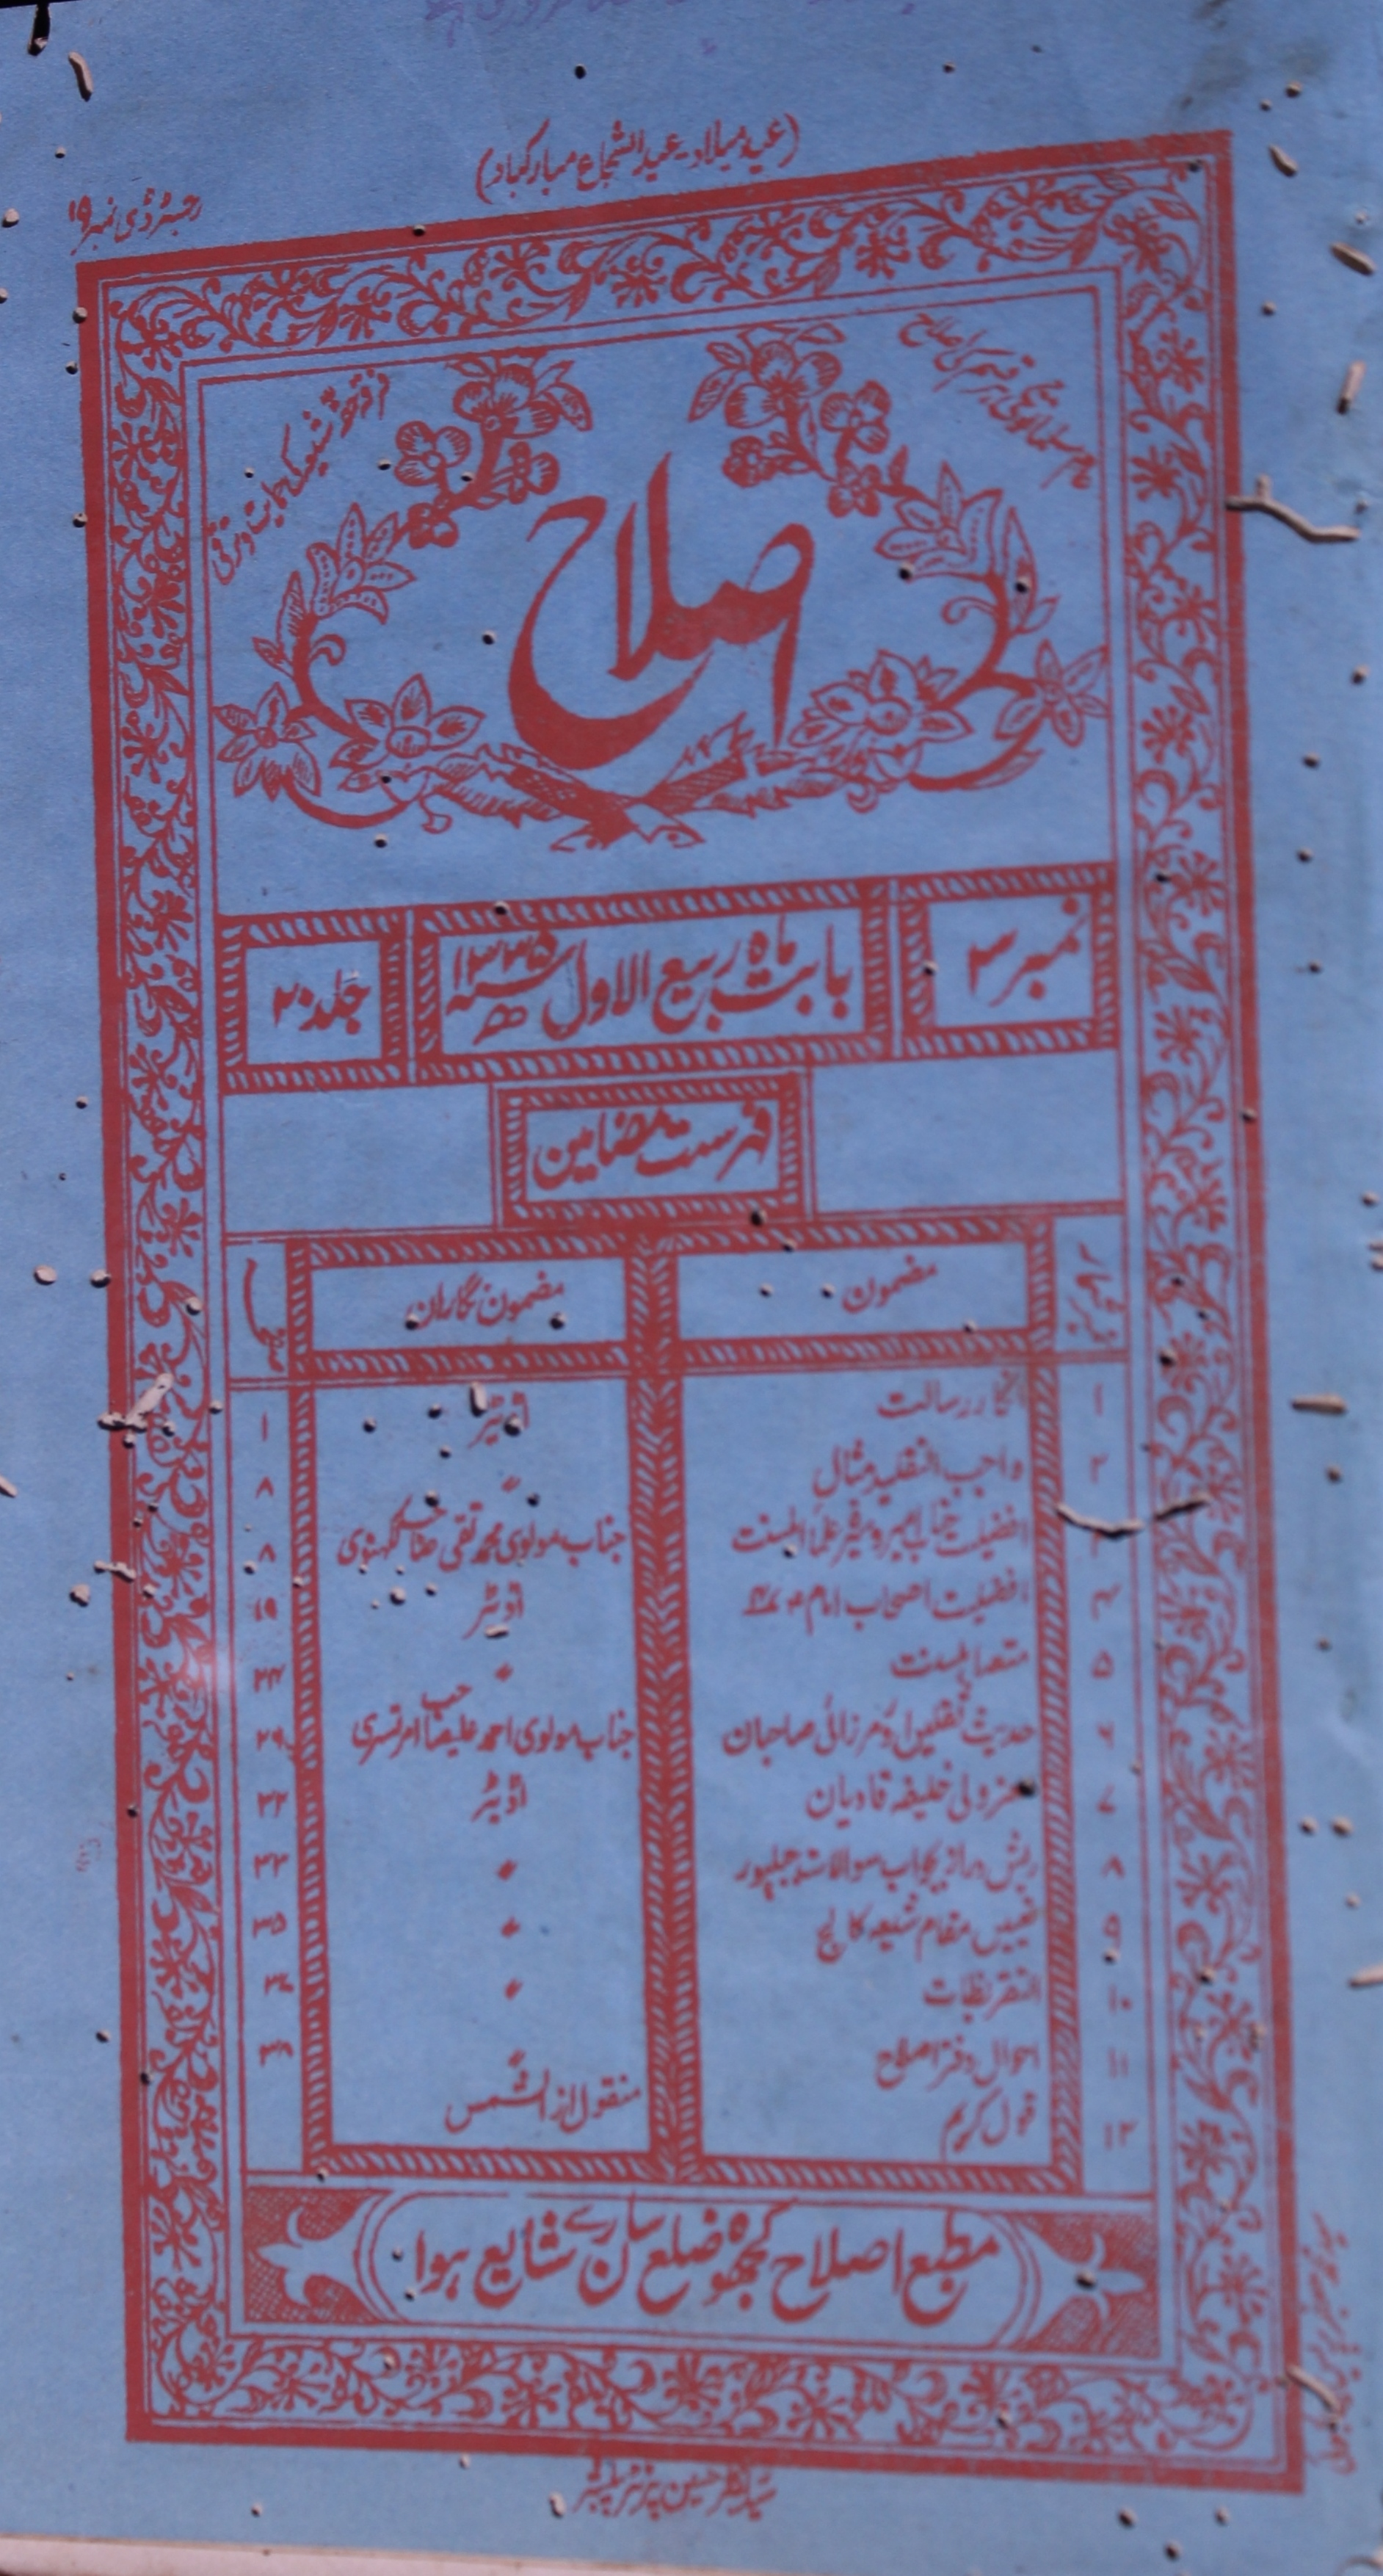 (عید میلاد۔ عید الشجاع مبارکباد)
رجسٹرڈ ڈی نمبر ۱۹
عام مسلمانوں کی ہر قسم کی اصلاح
فرقہ حقہ شیعہ کی حمایت و ترقی
اصلاح
نمبر ۳
بابت ماہ ربیع الاول سنہ ۱۳۳۵ھ
جلد ۲۰
فہرست مضامین
مضمون مضمون نگاران
۱ انکار رسالت اڈیٹر ۱
۲ واجب التقلید مثال " ۸
افضلیت جناب امیر علماء اہلسنت جناب مولوی محمد تقی صاحب لکھنوی ۸
۴ افضلیت اصحاب امام اڈیٹر ۱۹
۵ متعہ اہلسنت "
۶ حدیث ثقلین اور مرزائی صاحبان جناب مولوی احمد علیصاحب امرتسری ۲۹
۷ معزولی خلیفہ قادیان اڈیٹر ۳۲
۸ ریش دراز بجواب سوالات جبلپور " ۳۳
۹ تعیین مقام شیعہ کالج " ۳۵
۱۰ التقریظات "
۱۱ احوال دفتر اصلاح "
۱۲ قول کریم منقول از الشمس
مطبع اصلاح کھجوہ ضلع سارن سے شایع ہوا
حسین پرنٹر پبلشر